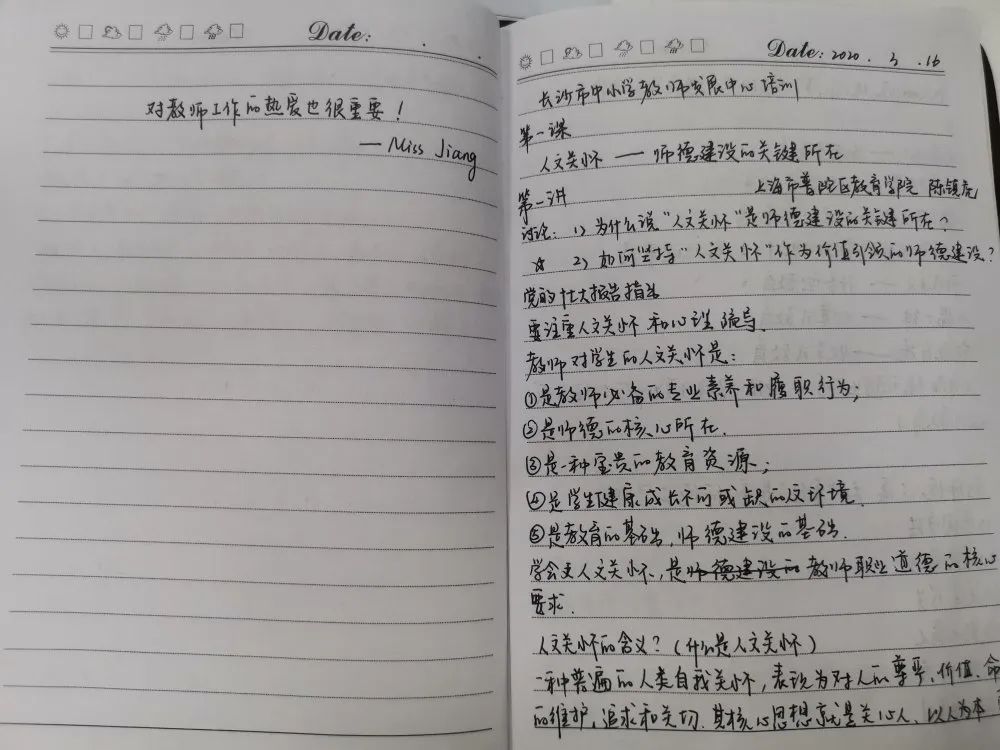 Date:
对教师工作的热爱也很重要！
— Miss Jiang
Date: 2020 . 3 . 16
长沙市中小学教师发展中心培训
第一课
人文关怀 — 师德建设的关键所在
第一讲 上海市普陀区教育学院 陈镇虎
讨论: 1) 为什么说"人文关怀"是师德建设的关键所在?
☆ 2) 如何坚持"人文关怀"作为价值引领的师德建设?
党的十七大报告指出
要注重人文关怀和心理疏导.
教师对学生的人文关怀是:
①是教师必备的专业素养和履职行为;
②是师德的核心所在.
③是一种宝贵的教育资源;
④是学生健康成长不可或缺的人文环境.
⑤是教育的基础,师德建设的基础.
学会人文关怀,是师德建设的教师职业道德的核心
要求.
人文关怀的含义?(什么是人文关怀)
一种普遍的人类自我关怀,表现为对人的尊严、价值、命
的维护,追求和关切.其核心思想就是关心人、以人为本